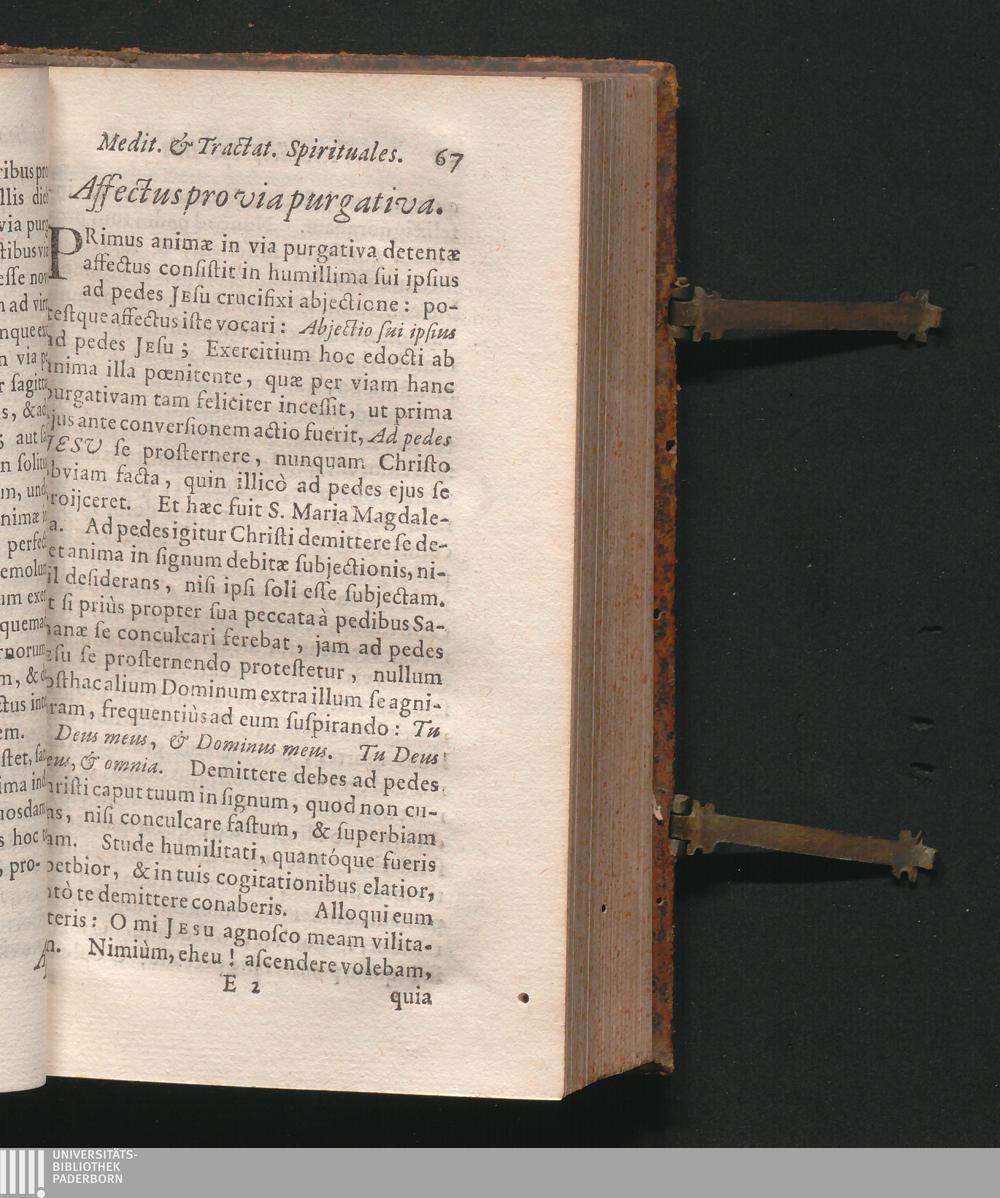 Medit. & Tractat. Spirituales. 67
Affectus pro via purgativa.
PRimus animæ in via purgativa detentæ
affectus conſiſtit in humillima ſui ipſius
ad pedes JEſu crucifixi abjectione: po-
teſtque affectus iſte vocari: Abjectio ſui ipſius
ad pedes JEſu; Exercitium hoc edocti ab
anima illa pœnitente, quæ per viam hanc
purgativam tam feliciter inceſſit, ut prima
ejus ante converſionem actio fuerit, Ad pedes
JESU ſe proſternere, nunquam Chriſto
obviam facta, quin illicò ad pedes ejus ſe
proijceret. Et hæc fuit S. Maria Magdale-
a. Ad pedes igitur Chriſti demittere ſe de-
et anima in ſignum debitæ ſubjectionis, ni-
il deſiderans, niſi ipſi ſoli eſſe ſubjectam.
t ſi priùs propter ſua peccata à pedibus Sa-
anæ ſe conculcari ferebat, jam ad pedes
eſu ſe proſternendo proteſtetur, nullum
oſthac alium Dominum extra illum ſe agni-
ram, frequentiùs ad eum ſuſpirando: Tu
Deus meus, & Dominus meus. Tu Deus
eus, & omnia. Demittere debes ad pedes
hriſti caput tuum in ſignum, quod non cu-
as, niſi conculcare faſtum, & ſuperbiam
am. Stude humilitati, quantóque fueris
perbior, & in tuis cogitationibus elatior,
ntò te demittere conaberis. Alloqui eum
teris: O mi JESU agnoſco meam vilita-
m. Nimiùm, eheu! aſcendere volebam,
E 2 quia
ribus pro
llis die
via pur
ctibus vi
eſſe nov
ad virt
nque ex
n via p
r ſagitt
s, & ad
; aut ſ
n ſolit
m, und
nimæ i
perfec
emolu
um exe
quema
rnorum
m, & d
ctus int
em.
ſtet, ſa
ima ind
uosdam
s hoc
, pro-
A
UNIVERSITÄTS-
BIBLIOTHEK
PADERBORN